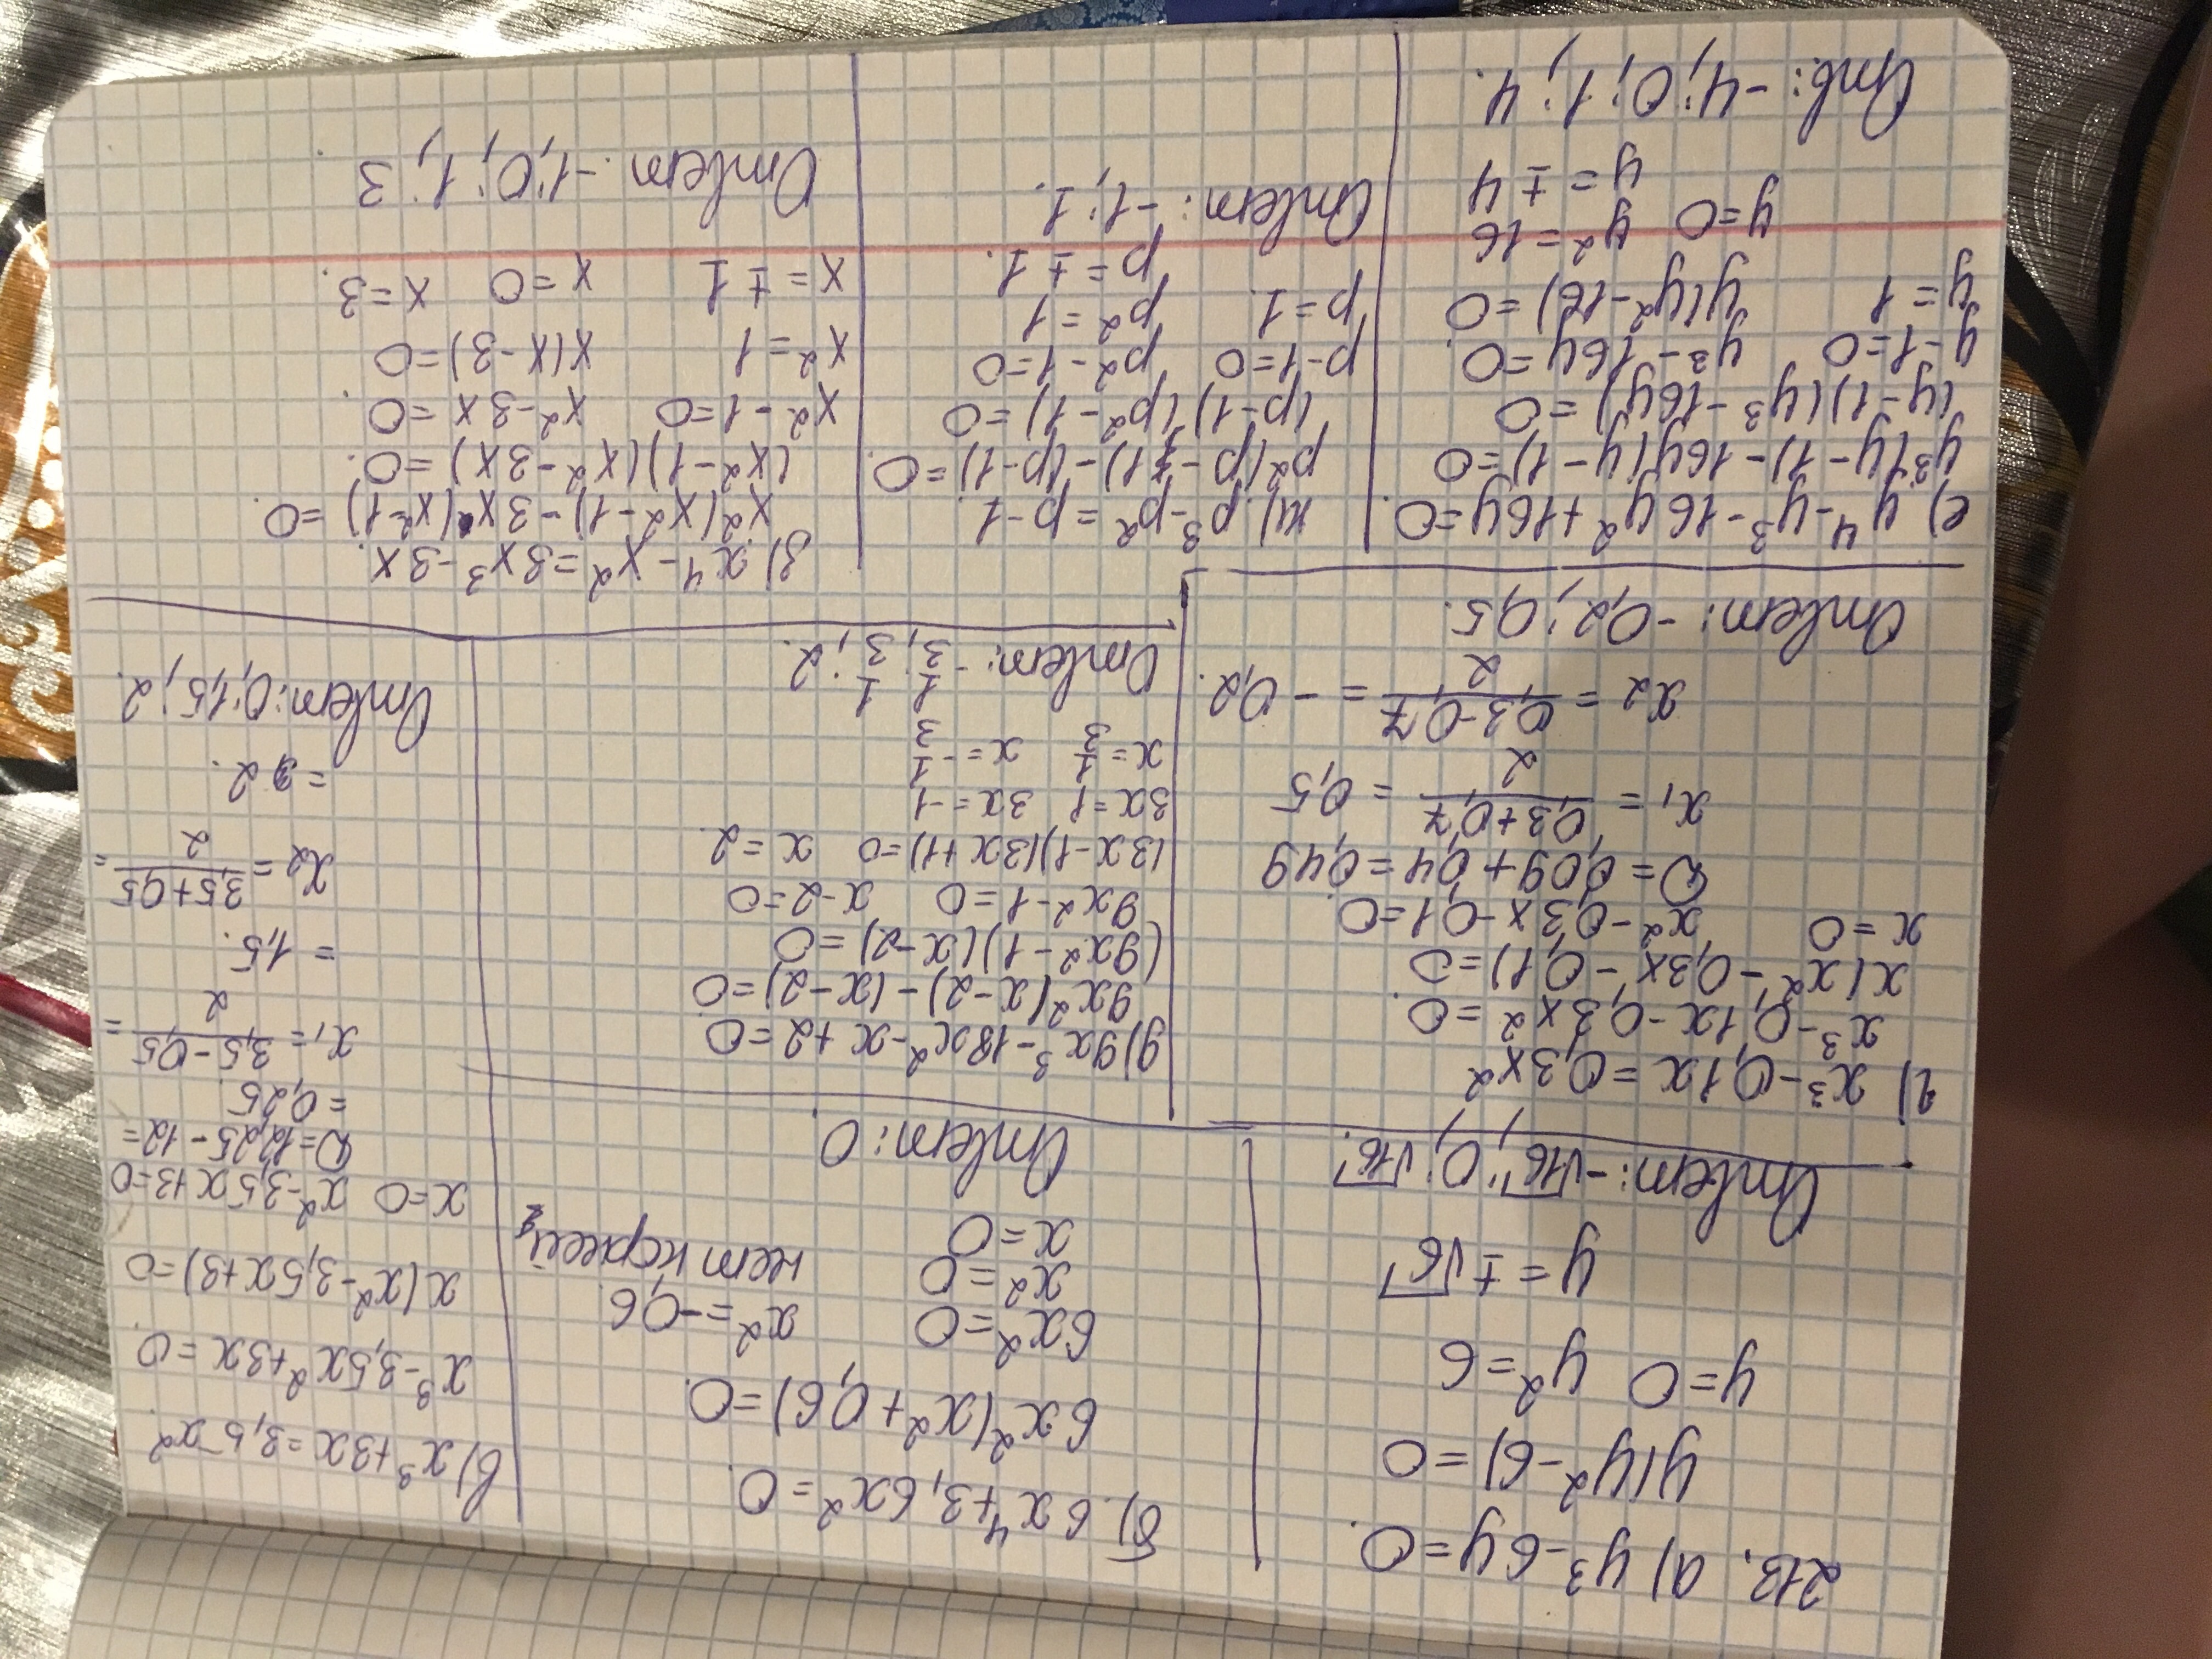 213. а) y³-6y=0.
y(y²-6)=0
y=0 y²=6
y=±√6
Ответ: -√6; 0; √6.
б) 6x⁴+3,6x²=0.
6x²(x²+0,6)=0.
6x²=0 x²=-0,6.
x²=0 нет корней
x=0
Ответ: 0.
в) x³+3x=3,5x²
x³-3,5x²+3x=0.
x(x²-3,5x+3)=0
x=0 x²-3,5x+3=0
D=12,25-12=
=0,25.
x₁=3,5-0,5/2=
=1,5.
x₂=3,5+0,5/2=
=2.
Ответ: 0; 1,5; 2.
г) x³-0,1x=0,3x²
x³-0,1x-0,3x²=0.
x(x²-0,3x-0,1)=0
x=0 x²-0,3x-0,1=0.
D=0,09+0,4=0,49
x₁=0,3+0,7/2=0,5
x₂=0,3-0,7/2=-0,2.
Ответ: -0,2; 0,5.
д) 9x³-18x²-x+2=0
9x²(x-2)-(x-2)=0
(9x²-1)(x-2)=0
9x²-1=0 x-2=0
(3x-1)(3x+1)=0 x=2.
3x=1 3x=-1
x=1/3 x=-1/3
Ответ: -1/3; 1/3; 2.
е) y⁴-y³-16y²+16y=0.
y³(y-1)-16y(y-1)=0
(y-1)(y³-16y)=0
y-1=0 y³-16y=0.
y=1 y(y²-16)=0
y=0 y²=16
y=±4
Отв: -4; 0; 1; 4.
ж) p³-p²=p-1.
p²(p-1)-(p-1)=0.
(p-1)(p²-1)=0
p-1=0 p²-1=0
p=1. p²=1
p=±1.
Ответ: -1; 1.
з) x⁴-x²=3x³-3x.
x²(x²-1)-3x(x²-1)=0.
(x²-1)(x²-3x)=0.
x²-1=0 x²-3x=0.
x²=1 x(x-3)=0
x=±1 x=0 x=3.
Ответ. -1; 0; 1; 3.